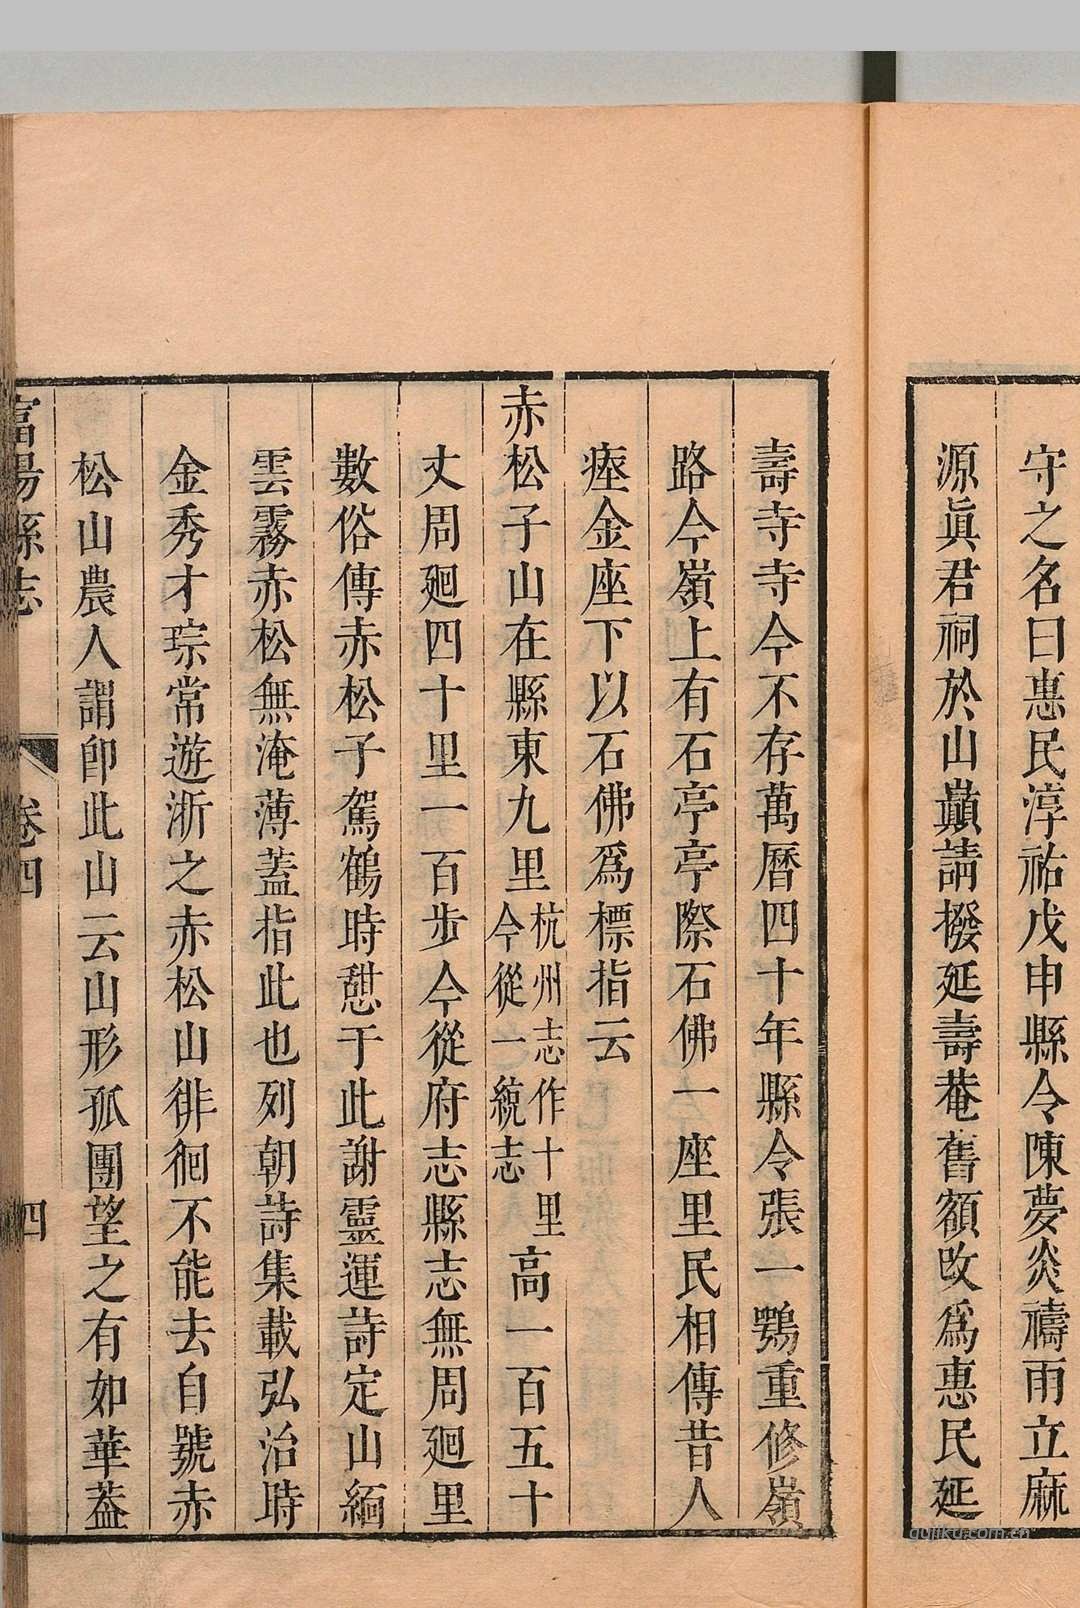 守之名曰惠民淳祐戊申縣令陳夢炎禱雨立麻
源眞君祠於山巔請撥延壽菴舊額改爲惠民延
壽寺寺今不存萬曆四十年縣令張一鶚重修嶺
路今嶺上有石亭亭際石佛一座里民相傳昔人
瘞金座下以石佛爲標指云
赤松子山在縣東九里杭州志作十里今從一統志高一百五十
丈周廻四十里一百步今從府志縣志無周廻里
數俗傳赤松子駕鶴時憇于此謝靈運詩定山緬
雲霧赤松無淹薄蓋指此也列朝詩集載弘治時
金秀才琮常遊浙之赤松山徘徊不能去自號赤
松山農人謂卽此山云山形孤團望之有如華葢
富陽縣志
卷四
四
gujiku.com.cn